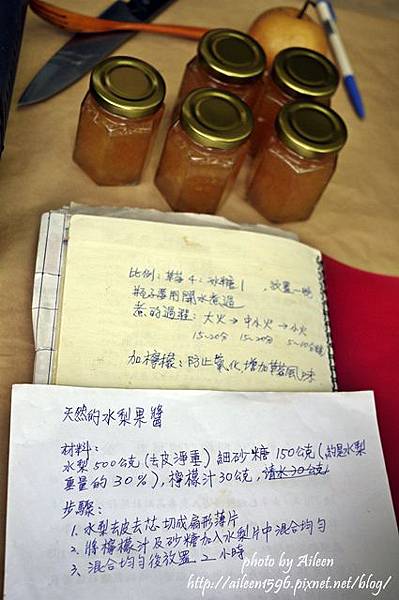 比例：草莓4：砂糖1，放置一晚
瓶子要用開水煮過
煮的過程：大火→中小火→小火
15~20分 15~20分 5~10分鐘
加檸檬：防止氧化，增加莓風味
天然的水梨果醬
材料：
水梨500公克(去皮淨重)細砂糖150公克(約是水梨
重量的30%)，檸檬汁30公克，清水30公克
步驟：
1、水梨去皮去芯、切成扇形薄片
2、將檸檬汁及砂糖加入水梨片中混合均勻
3、混合均勻後放置2小時
photo by Aileen
http://aileen1596.pixnet.net/blog/